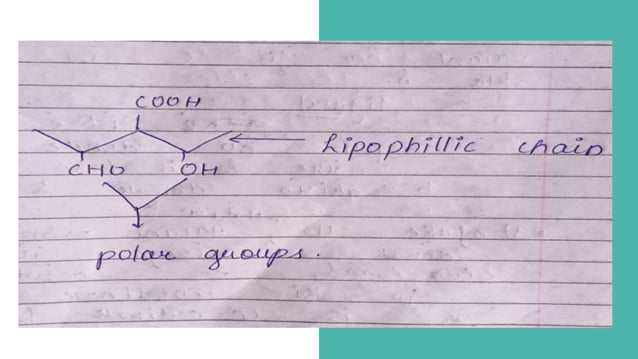 COOH
Lipophillic chain
CHO OH
polar groups.